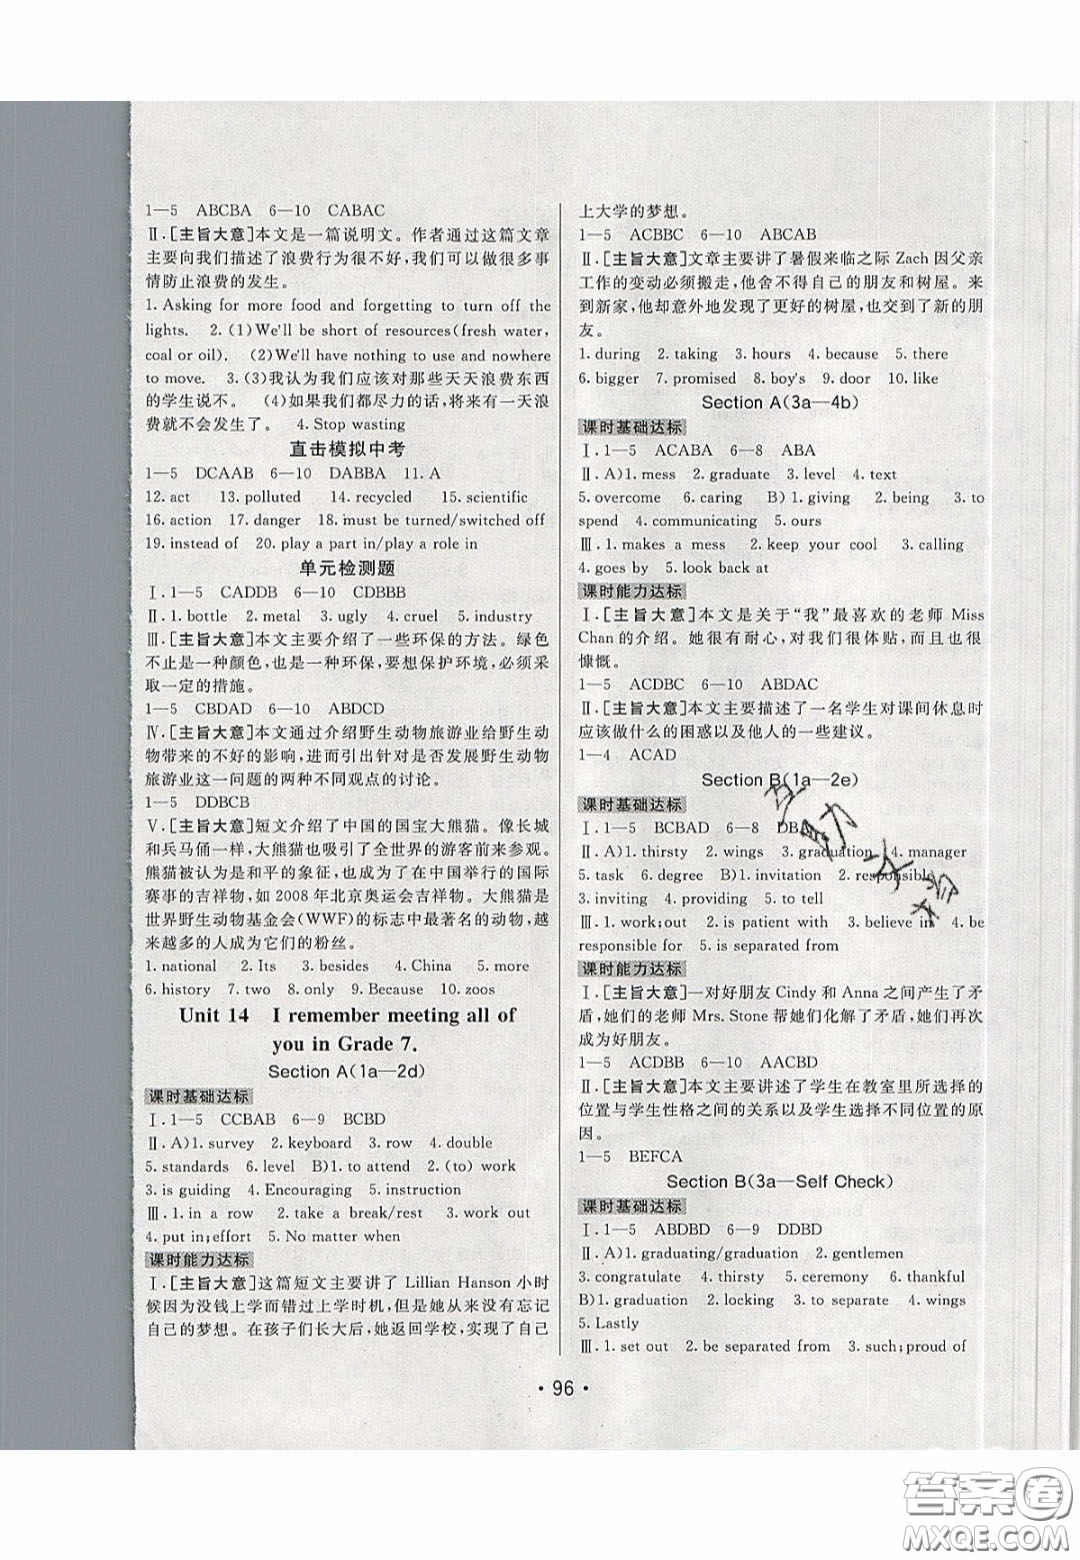 1—5 ABCBA 6—10 CABAC
Ⅱ.[主旨大意]本文是一篇说明文。作者通过这篇文章
主要向我们描述了浪费行为很不好,我们可以做很多事
情防止浪费的发生。
1. Asking for more food and forgetting to turn off the
lights. 2. (1)We'll be short of resources(fresh water,
coal or oil). (2)We'll have nothing to use and nowhere
to move. 3. (3)我认为我们应该对那些天天浪费东西
的学生说不。 (4)如果我们都尽力的话,将来有一天浪
费就不会发生了。 4. Stop wasting
直击模拟中考
1—5 DCAAB 6—10 DABBA 11. A
12. act 13. polluted 14. recycled 15. scientific
16. action 17. danger 18. must be turned/switched off
19. instead of 20. play a part in/play a role in
单元检测题
Ⅰ. 1—5 CADDB 6—10 CDBBB
Ⅱ. 1. bottle 2. metal 3. ugly 4. cruel 5. industry
Ⅲ.[主旨大意]本文主要介绍了一些环保的方法。绿色
不止是一种颜色,也是一种环保,要想保护环境,必须采
取一定的措施。
1—5 CBDAD 6—10 ABDCD
Ⅳ.[主旨大意]本文通过介绍野生动物旅游业给野生动
物带来的不好的影响,进而引出针对是否发展野生动物
旅游业这一问题的两种不同观点的讨论。
1—5 DDBCB
Ⅴ.[主旨大意]短文介绍了中国的国宝大熊猫。像长城
和兵马俑一样,大熊猫也吸引了全世界的游客前来参观。
熊猫被认为是和平的象征,也成为了在中国举行的国际
赛事的吉祥物,如 2008 年北京奥运会吉祥物。大熊猫是
世界野生动物基金会(WWF)的标志中最著名的动物,越
来越多的人成为它们的粉丝。
1. national 2. Its 3. besides 4. China 5. more
6. history 7. two 8. only 9. Because 10. zoos
Unit 14 I remember meeting all of
you in Grade 7.
Section A(1a—2d)
课时基础达标
Ⅰ. 1—5 CCBAB 6—9 BCBD
Ⅱ. A)1. survey 2. keyboard 3. row 4. double
5. standards 6. level B)1. to attend 2. (to) work
3. is guiding 4. Encouraging 5. instruction
Ⅲ. 1. in a row 2. take a break/rest 3. work out
4. put in; effort 5. No matter when
课时能力达标
Ⅰ.[主旨大意]这篇短文主要讲了 Lillian Hanson 小时
候因为没钱上学而错过上学时机,但是她从来没有忘记
自己的梦想。在孩子们长大后,她返回学校,实现了自己
上大学的梦想。
1—5 ACBBC 6—10 ABCAB
Ⅱ.[主旨大意]文章主要讲了暑假来临之际 Zach 因父亲
工作的变动必须搬走,他舍不得自己的朋友和树屋。来
到新家,他却意外地发现了更好的树屋,也交到了新的朋
友。
1. during 2. taking 3. hours 4. because 5. there
6. bigger 7. promised 8. boy's 9. door 10. like
Section A(3a—4b)
课时基础达标
Ⅰ. 1—5 ACABA 6—8 ABA
Ⅱ. A)1. mess 2. graduate 3. level 4. text
5. overcome 6. caring B)1. giving 2. being 3. to
spend 4. communicating 5. ours
Ⅲ. 1. makes a mess 2. keep your cool 3. calling
4. goes by 5. look back at
课时能力达标
Ⅰ.[主旨大意]本文是关于“我”最喜欢的老师 Miss
Chan 的介绍。她很有耐心,对我们很体贴,而且也很
慷慨。
1—5 ACDBC 6—10 ABDAC
Ⅱ.[主旨大意]本文主要描述了一名学生对课间休息时
应该做什么的困惑以及他人的一些建议。
1—4 ACAD
Section B(1a—2e)
课时基础达标
Ⅰ. 1—5 BCBAD 6—8 DBA
Ⅱ. A)1. thirsty 2. wings 3. graduation 4. manager
5. task 6. degree B)1. invitation 2. responsible
3. inviting 4. providing 5. to tell
Ⅲ. 1. work; out 2. is patient with 3. believe in 4. be
responsible for 5. is separated from
课时能力达标
Ⅰ.[主旨大意]一对好朋友 Cindy 和 Anna 之间产生了矛
盾,她们的老师 Mrs. Stone 帮她们化解了矛盾,她们再次
成为好朋友。
1—5 ACDBB 6—10 AACBD
Ⅱ.[主旨大意]本文主要讲述了学生在教室里所选择的
位置与学生性格之间的关系以及学生选择不同位置的原
因。
1—5 BEFCA
Section B(3a—Self Check)
课时基础达标
Ⅰ. 1—5 ABDBD 6—9 DDBD
Ⅱ. A)1. graduating/graduation 2. gentlemen
3. congratulate 4. thirsty 5. ceremony 6. thankful
B)1. graduation 2. locking 3. to separate 4. wings
5. Lastly
Ⅲ. 1. set out 2. be separated from 3. such; proud of
· 96 ·
答案圈
MXQE.COM